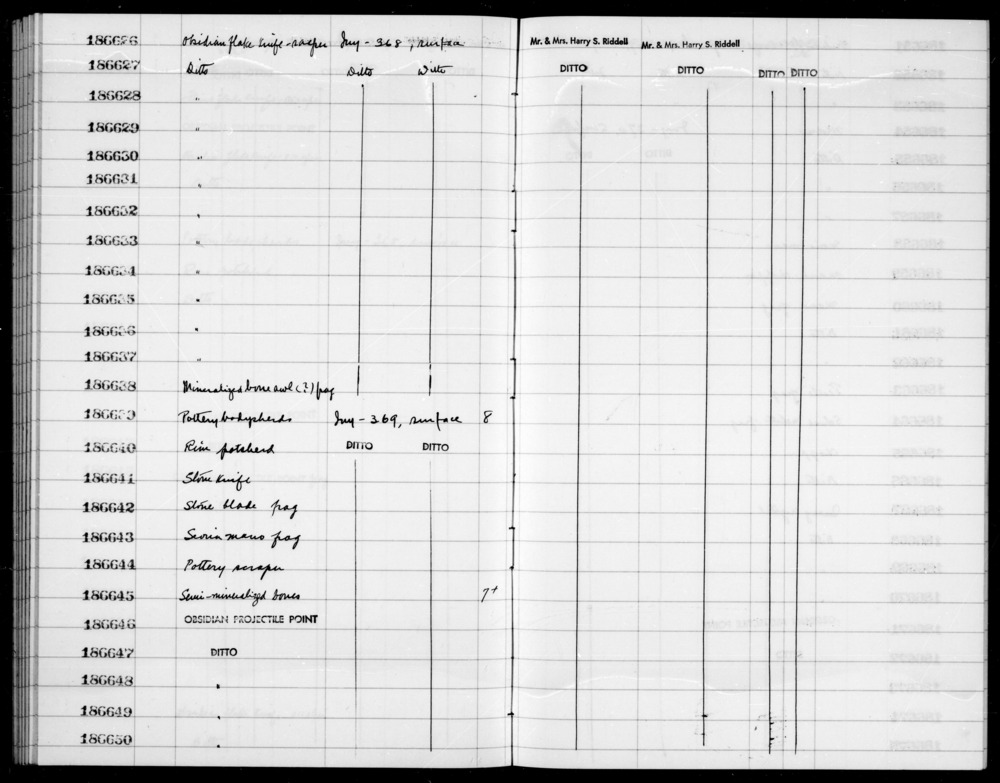 186626 Obsidian flake knife-scraper Iny-368, surface Mr. & Mrs. Harry S. Riddell Mr. & Mrs. Harry S. Riddell
186627 Ditto Ditto Ditto DITTO DITTO DITTO DITTO
186628 "
186629 "
186630 "
186631 "
186632 "
186633 "
186634 "
186635 "
186636 "
186637 "
186638 Mineralized bone awl (?) frag
186639 Pottery bodysherds Iny-369, surface 8
186640 Rim potsherd DITTO DITTO
186641 Stone knife
186642 Stone blade frag
186643 Scoria mano frag
186644 Pottery scraper
186645 Semi-mineralized bones 7+
186646 OBSIDIAN PROJECTILE POINT
186647 DITTO
186648 "
186649 "
186650 "